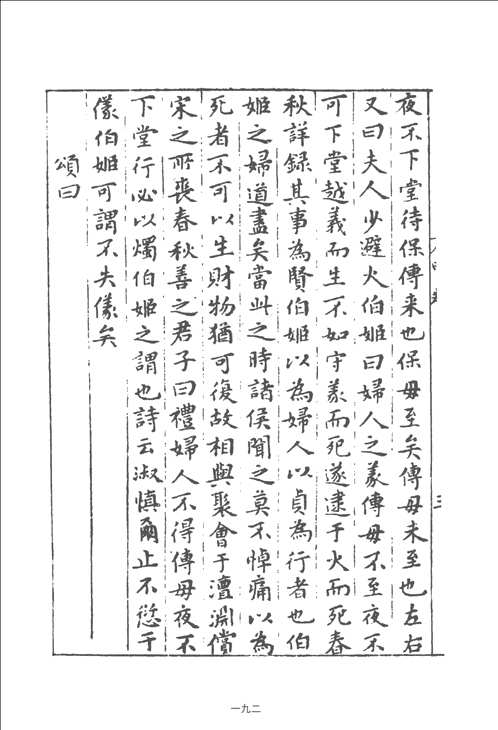 夜不下堂待保傅来也保毋至矣傅毋未至也左右
又曰夫人少避火伯姬曰婦人之義傅毋不至夜不
可下堂越義而生不如守義而死遂逮于火而死春
秋詳録其事為賢伯姬以為婦人以貞為行者也伯
姬之婦道盡矣當此之時諸侯聞之莫不悼痛以為
死者不可以生財物猶可復故相與聚會于澶淵償
宋之所喪春秋善之君子曰禮婦人不得傅毋夜不
下堂行必以燭伯姬之謂也詩云淑慎爾止不愆于
儀伯姬可謂不失儀矣
頌曰
一九二